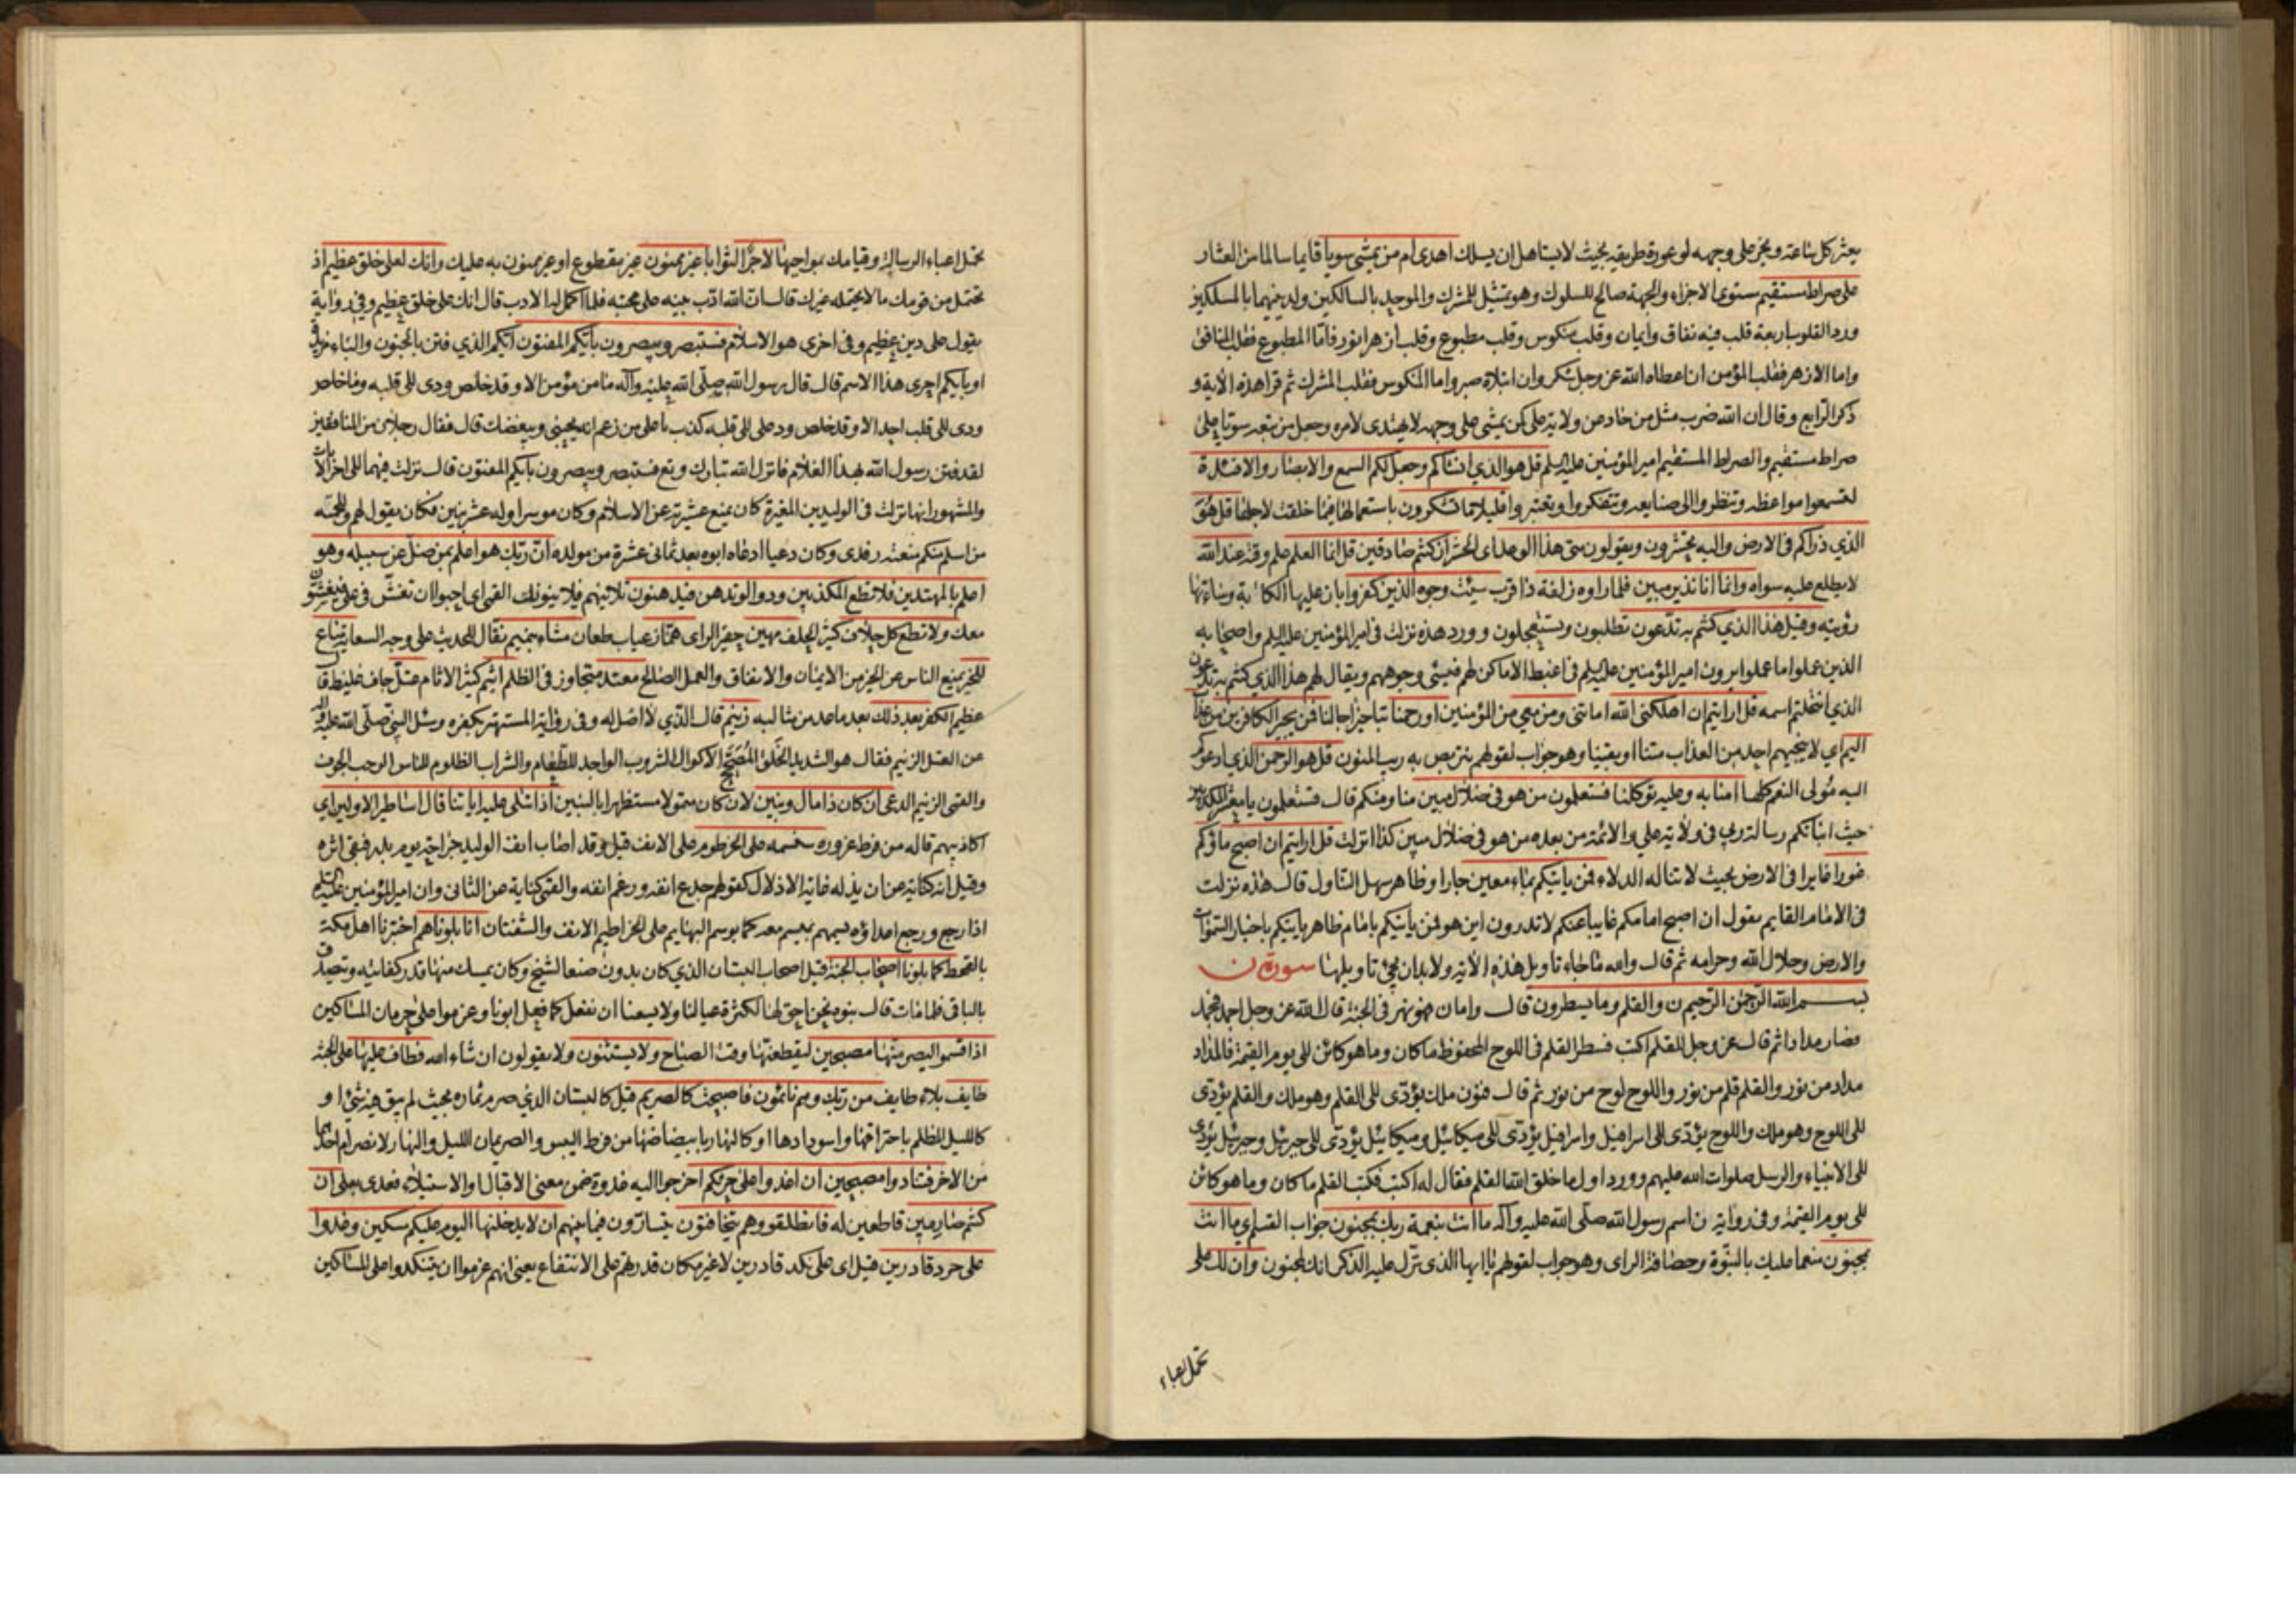 يعثر كل ساعة ويخر على وجهه لوعورة طريقه بحيث لا يستاهل ان يسلك اهدى ام من يمشي سويا قايما سالما من العثار
على صراط مستقيم مستوى الاجزاء والجهة صالح للسلوك وهو تمثيل للمشرك والموحد بالسالكين ولدينهما بالمسلكين
ورد القلوب اربعة قلب فيه نفاق وايمان وقلب منكوس وقلب مطبوع وقلب ازهر انور فاما المطبوع فقلب المنافق
واما الازهر فقلب المؤمن ان اعطاه الله عز وجل شكر وان ابتلاه صبر واما المنكوس فقلب المشرك ثم قرا هذه الاية و
ذكر الرابع وقال ان الله ضرب مثل من حاد عن ولاية علي كمن يمشي على وجهه لا يهتدى لامره وجعل من تبعه سويا على
صراط مستقيم والصراط المستقيم امير المؤمنين عليه السلم قل هو الذي انشاكم وجعل لكم السمع والابصار والافئدة
لتسمعوا مواعظه وتنظروا الى صنايعه وتتفكروا وتعتبروا قليلا ما تشكرون باستعمالها فيما خلقت لاجلها قل هو
الذي ذراكم في الارض واليه تحشرون ويقولون متى هذا الوعد اى الحشر ان كنتم صادقين قل انما العلم علم وقته عند الله
لا يطلع عليه سواه وانما انا نذير مبين فلما راوه زلفة ذا قرب سيئت وجوه الذين كفروا بان عليها الكابة وساءتها
رؤيته وقيل هذا الذي كنتم به تدعون تطلبون وتستعجلون وورد هذه نزلت في امير المؤمنين عليه السلم واصحابه
الذين عملوا ما عملوا يرون امير المؤمنين عليه السلم في اغبط الاماكن لهم فيسئ وجوههم ويقال لهم هذا الذي كنتم به تدعون
الذي انتحلتم اسمه قل ارايتم ان اهلكني الله اماتني ومن معي من المؤمنين او رحمنا بتاخير اجالنا فمن يجير الكافرين من عذاب
اليم اي لا ينجيهم احد من العذاب متنا او بقينا وهو جواب لقولهم نتربص به ريب المنون قل هو الرحمن الذي ادعوكم
اليه مولى النعم كلها امنا به وعليه توكلنا فستعلمون من هو في ضلال مبين منا ومنكم قال فستعلمون يا معشر المكذبين
حيث انباتكم رسالة ربي في ولاية علي والائمة من بعده من هو في ضلال مبين كذا انزلت قل ارايتم ان اصبح ماؤكم
غورا غايرا في الارض بحيث لا تناله الدلاء فمن ياتيكم بماء معين جار او ظاهر سهل التناول قال هذه نزلت
في الامام القايم يقول ان اصبح امامكم غايبا عنكم لا تدرون اين هو فمن ياتيكم بامام ظاهر ياتيكم باخبار السموات
والارض وحلال الله وحرامه ثم قال والله ما جاء تاويل هذه الاية ولا بد ان يجئ تاويلها سورة ن
بسم الله الرحمن الرحيم ن والقلم وما يسطرون قال واما ن فهو نهر في الجنة قال الله عز وجل اجمد فجمد
فصار مدادا ثم قال عز وجل للقلم اكتب فسطر القلم في اللوح المحفوظ ما كان وما هو كائن الى يوم القيمة فالمداد
مداد من نور والقلم قلم من نور واللوح لوح من نور ثم قال فنون ملك يؤدى الى القلم وهو ملك والقلم يؤدى
الى اللوح وهو ملك واللوح يؤدى الى اسرافيل واسرافيل يؤدى الى ميكائيل وميكائيل يؤدى الى جبرئيل وجبرئيل يؤدى
الى الانبياء والرسل صلوات الله عليهم وورد اول ما خلق الله القلم فقال له اكتب فكتب القلم ما كان وما هو كائن
الى يوم القيمة وفي رواية ن اسم رسول الله صلى الله عليه واله ما انت بنعمة ربك بمجنون جواب القسم اي ما انت
بمجنون منعما عليك بالنبوة وحصافة الراى وهو جواب لقولهم يا ايها الذى نزل عليه الذكر انك لمجنون وان لك على
تحمل اعباء
تحمل اعباء الرسالة وقيامك بمواجبها لاجرا لثوابا غير ممنون غير مقطوع او غير ممنون به عليك وانك لعلى خلق عظيم اذ
تحتمل من قومك ما لا يحتمله غيرك قال ان الله ادب نبيه على محبته فلما اكمل له الادب قال انك على خلق عظيم وفي رواية
يقول على دين عظيم وفي اخرى هو الاسلام فستبصر ويبصرون بايكم المفتون ايكم الذي فتن بالجنون والباء مزيدة
او بايكم احرى هذا الاسم قال قال رسول الله صلى الله عليه وآله ما من مؤمن الا وقد خلص ودى الى قلبه وما خلص
ودى الى قلب احد الا وقد خلص ود على الى قلبه كذب يا على من زعم انه يحبني ويبغضك قال فقال رجلان من المنافقين
لقد فتن رسول الله بهذا الغلام فانزل الله تبارك وتع فستبصر ويبصرون بايكم المفتون قال نزلت فيهما الى اخر الايات
والمشهور انها نزلت في الوليد بن المغيرة كان يمنع عشيرته عن الاسلام وكان موسرا وله عشر بنين فكان يقول لهم وللحمته
من اسلم منكم منعته رفدى وكان دعيا ادعاه ابوه بعد ثماني عشرة من مولده ان ربك هو اعلم بمن ضل عن سبيله وهو
اعلم بالمهتدين فلا تطع المكذبين ودوا لو تدهن فيدهنون تلاينهم فيلاينونك القمى اى احبوا ان تغش في علي فيغشون
معك ولا تطع كل حلاف كثير الحلف مهين حقير الراى هماز عياب طعان مشاء بنميم نقال للحديث على وجه السعاية مناع
للخير يمنع الناس عن الخير من الايمان والانفاق والعمل الصالح معتد متجاوز في الظلم اثيم كثير الاثام عتل جاف غليظ قال
عظيم الكفر بعد ذلك بعد ما عد من مثالبه زنيم قال الذي لا اصل له وفي رواية المستهتر بكفره وسئل النبي صلى الله عليه وآله
عن العتل الزنيم فقال هو الشديد الخلق المصحح الاكول الشروب الواجد للطعام والشراب الظلوم للناس الرحب الجوف
والقمى الزنيم الدعى ان كان ذا مال وبنين لان كان متمولا مستظهرا بالبنين اذا تتلى عليه اياتنا قال اساطير الاولين اي
اكاذيبهم قاله من فرط غروره سنسمه على الخرطوم على الانف قيل وقد اصاب انف الوليد جراحة يوم بدر فبقى اثره
وقيل انه كناية عن ان يذله غاية الاذلال كقولهم جدع انفه ورغم انفه والقمى كناية عن الثاني وان امير المؤمنين عليه السلم
اذا رجع ورجع اعداؤه فيسمهم بميسم معه كما يوسم البهايم على الخراطيم الانف والشفتان انا بلوناهم اختبرنا اهل مكة
بالقحط كما بلونا اصحاب الجنة قيل اصحاب البستان الذي كان بدون صنعا لشيخ وكان يمسك منها قدر كفايته ويتصدق
بالباقي فلما مات قال بنوه نحن احق لها لكثرة عيالنا ولا يسعنا ان نفعل كما فعل ابونا وعزموا على حرمان المساكين
اذا قسموا ليصرمنها مصبحين ليقطعنها وقت الصباح ولا يستثنون ولا يقولون ان شاء الله فطاف عليها على الجنة
طايف بلاء طايف من ربك وهم نائمون فاصبحت كالصريم قيل كالبستان الذي صرم ثماره بحيث لم يبق فيه شئ او
كالليل المظلم باحتراقها واسودادها او كالنهار بابيضاضها من فرط اليبس والصريمان الليل والنهار لانصرام احدهما
من الاخر فتنادوا مصبحين ان اغدوا على حرثكم اخرجوا اليه غدوة ضمن معنى الاقبال والاستيلاء فعدى بعلى ان
كنتم صارمين قاطعين له فانطلقوا وهم يتخافتون يتسارون فيما بينهم ان لا يدخلنها اليوم عليكم مسكين وغدوا
على حرد قادرين قيل اى على نكد قادرين لا غير مكان قدرتهم على الانتفاع يعني انهم عزموا ان يتنكدوا على المساكين